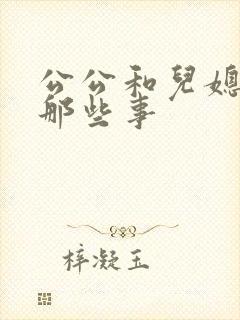 公公和兒媳
那些事
梓凝玉